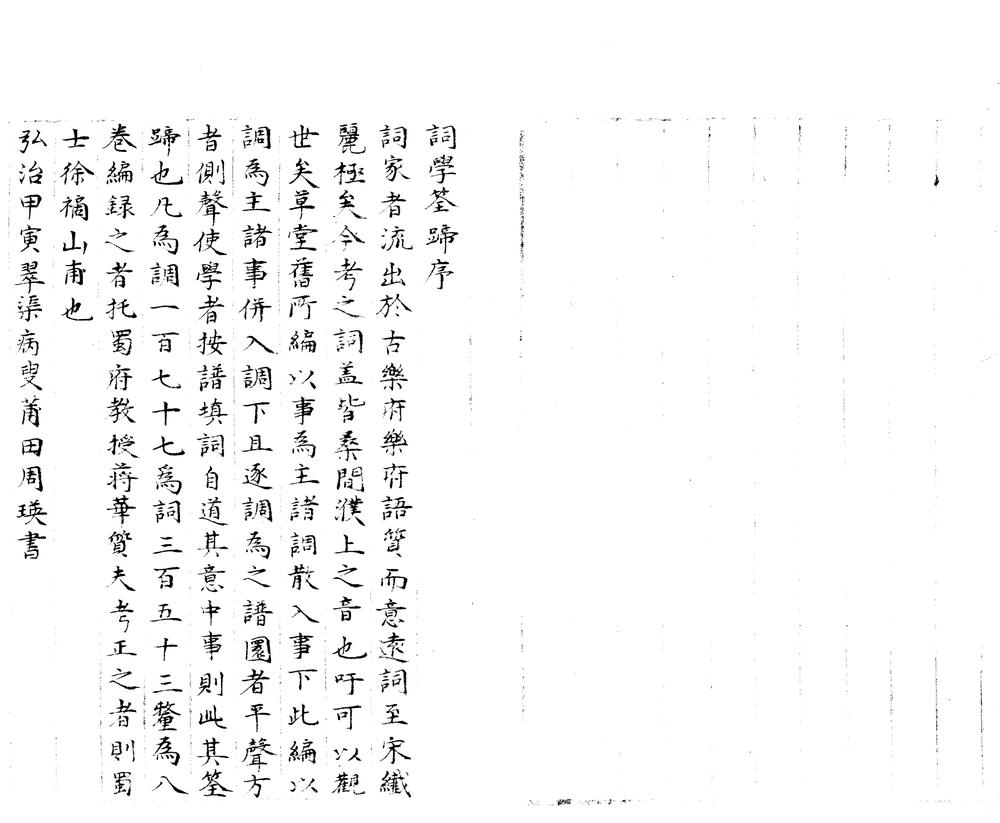 詞學筌蹄序
詞家者流出於古樂府樂府語質而意遠詞至宋纖
麗極矣今考之詞蓋皆桑間濮上之音也吁可以觀
世矣草堂舊所編以事為主諸調散入事下此編以
調為主諸事併入調下且逐調為之譜圜者平聲方
者側聲使學者按譜填詞自道其意中事則此其筌
蹄也凡為調一百七十七為詞三百五十三釐為八
卷編録之者托蜀府教授蔣華質夫考正之者則蜀
士徐𣚴山甫也
弘治甲寅翠渠病叟莆田周瑛書